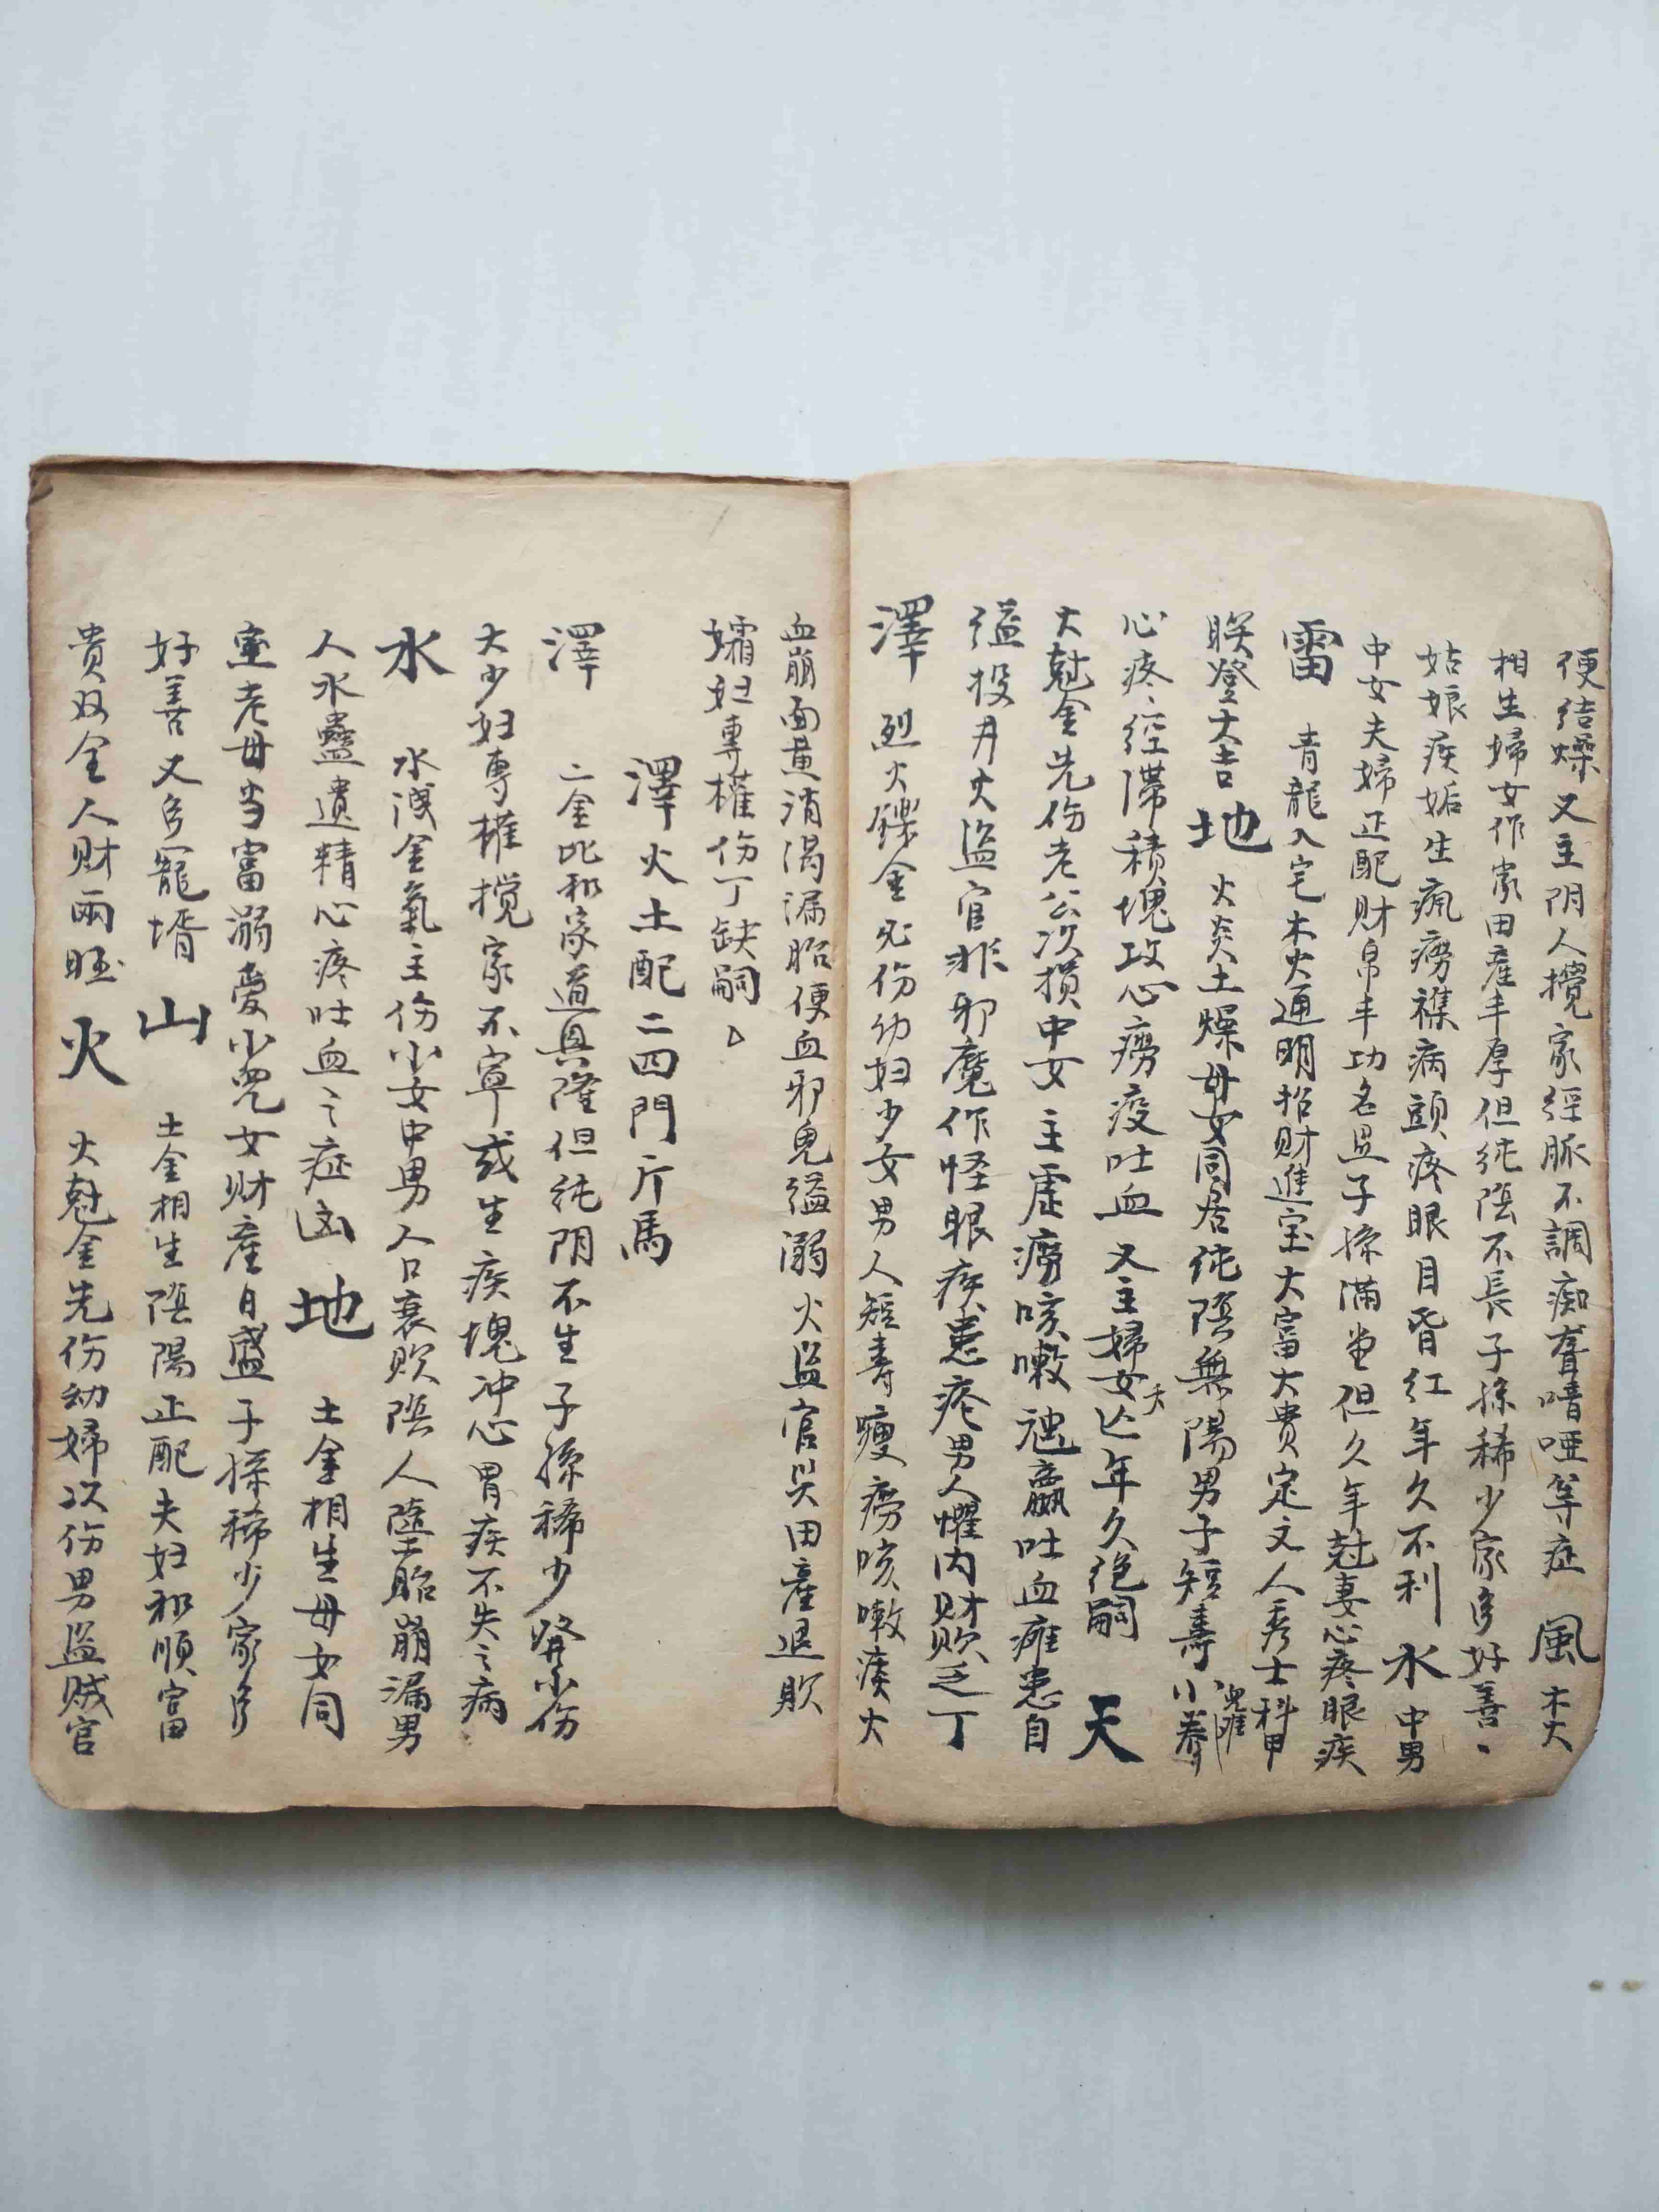 便结燥又主阴人攪家經脈不調痴聋喑哑等症 風 木火
相生婦女作家田產丰厚但纯陰不長子孫稀少家多好善
姑娘疾妬生瘋癆襍病頭疼眼目昏红年久不利 水 中男
中女夫婦正配财帛丰功名显子孫满堂但久年尅妻心疼眼疾
雷 青龍入宅木火通明招财進宝大富大贵定文人秀士科甲
联登大吉 地 火炎土燥母女同居纯陰無陽男子短寿小兒难养
心疼經滞積塊攻心癆疫吐血又主婦女夭亡年久绝嗣 天
火尅金先伤老公次损中女主虚癆咳嗽尪羸吐血瘫患自
缢投井火盗官非邪魔作怪眼疾患疮男人懼内财败乏丁
澤 烈火鑠金必伤幼妇少女男人短寿瘦癆咳嗽痰火
血崩面黄消渴漏胎便血邪鬼缢溺火盗官災田產退败
孀妇專權伤丁缺嗣
澤火土配二四門斤馬
澤 二金比和家道興隆但纯阴不生子孫稀少發小伤
大少妇專權搅家不寧或生疾塊冲心胃疾不失之病
水 水洩金氣主伤少女中男人口衰败陰人墮胎崩漏男
人水蠱遺精心疼吐血之症凶 地 土金相生母女同
室老母当富溺愛小兒女财產日盛子孫稀少家多
好善又多寵婿 山 土金相生陰陽正配夫妇和順富
贵双全人财兩旺 火 火尅金先伤幼婦次伤男盗贼官